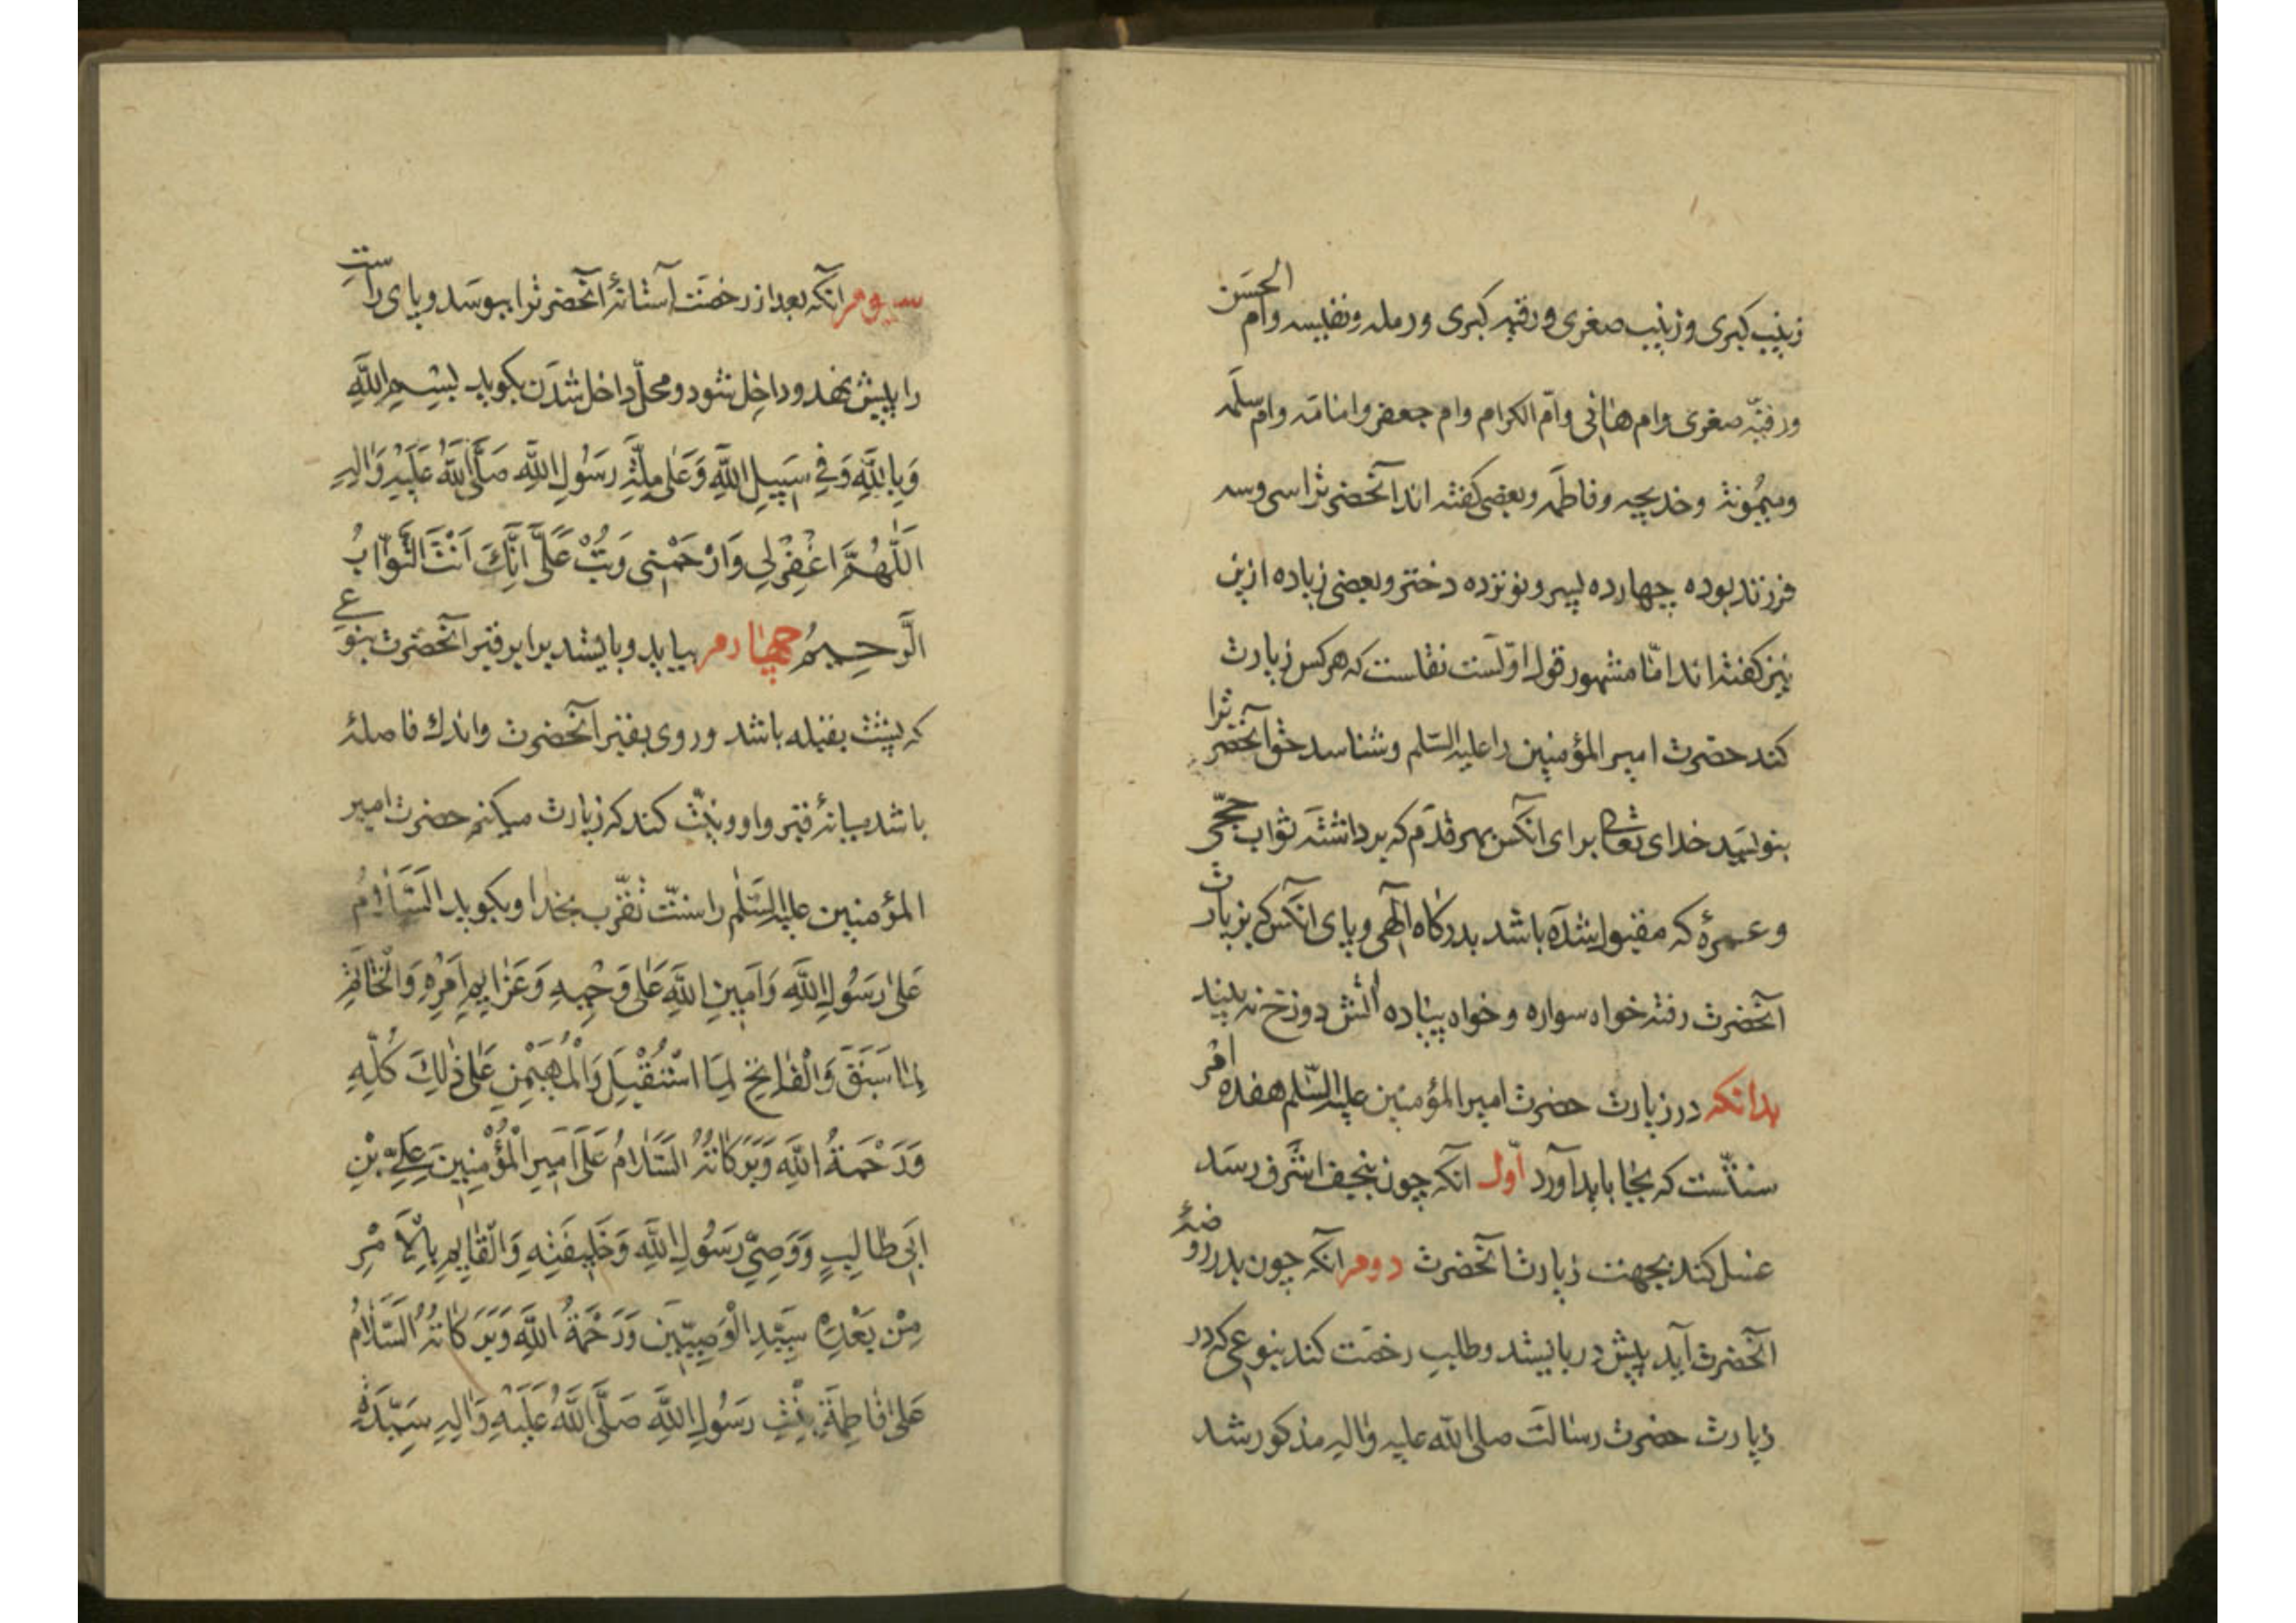 زینب کبری و زینب صغری و رقیه کبری و رمله و نفیسه و ام الحسن
و رقیّه صغری و ام هانی و امّ الکرام و ام جعفر و امامه و ام سلمه
و میمُونه و خدیجه و فاطمه و بعضی گفته اند آنحضرترا سی و سه
فرزند بوده چهارده پسر و نوزده دختر و بعضی زیاده ازین
نیز گفته‌اند امّا مشهور قول اوّلست نقلست که هرکس زیارت
کند حضرت امیر المؤمنین را علیه السّلم و شناسد حق آنحضرترا
بنویسَد خدای تعالی برای آنکس بهر قدَم که برداشته ثواب حجّی
و عمرهٔ که مقبول شدَه باشد بدرکاه الٓهی و پای آنکس که بزیارت
آنحضرت رفته خواه سواره و خواه پیاده آتش دوزخ نه بیند
بدانکه در زیارت حضرت امیر المؤمنین علیه السّلم هفده امر
سنّتست که بجا باید آورد اوّل آنکه چون بنجف اشرف رسَد
غسل کند بجهت زیارت آنحضرت دوم آنکه چون بدر روضهٔ
آنحضرت آید پیش در بایستد و طلب رخصت کند بنوعی که در
زیارت حضرت رسالت صلی الله علیه و اله مذکور شد
سیوم آنکه بعد از رخصت آستانهٔ آنحضرترا ببوسَد و پای راست
را پیش نهد و داخِل شود و محلّ داخل شدَن بکوید بِسْمِ اللَّهِ
وَ بِاللَّهِ وَ فِی سَبِیلِ اللَّهِ وَ عَلٰی مِلَّةِ رَسُولِ اللَّهِ صَلَّی اللَّهُ عَلَیْهِ وَ اٰلِهِ
اَللّٰهُمَّ اغْفِرْلِی وَ ارْحَمْنِی وَ تُبْ عَلَیَّ اِنَّکَ اَنْتَ التَّوّٰابُ
الرَّحِیمُ چهارم بیاید و بایستد برابر قبر آنحضرت بنوعی
که پشت بقبله باشد و روی بقبر آنحضرت و اندك فاصلهٔ
باشد میانهٔ قبر و او و نیّت کند که زیارت میکنم حضرت امیر
المؤمنین علیه السّلٰم را سنّت تقرّب بخدا و بکوید اَلسَّلٰامُ
عَلیٰ رَسُولِ اللَّهِ وَ اَمِینِ اللَّهِ عَلٰی وَحْیِهِ وَ عَزٰایِمِ اَمْرِهِ وَ الْخٰاتِمِ
لِمٰا سَبَقَ وَ الْفٰاتِحِ لِمَا اسْتُقْبِلَ وَ الْمُهَیْمِنِ عَلیٰ ذٰلِكَ کُلِّهِ
وَ رَحْمَةُ اللَّهِ وَ بَرَکٰاتُهُ اَلسَّلٰامُ عَلیٰ اَمِیرِ الْمُؤْمِنِینَ عَلِیِّ بْنِ
اَبِی طٰالِبٍ وَ وَصِیِّ رَسُولِ اللَّهِ وَ خَلِیفَتِهِ وَ الْقٰایِمِ بِالْاَمْرِ
مِنْ بَعْدِهِ سَیِّدِ الْوَصِیِّینَ وَ رَحْمَةُ اللَّهِ وَ بَرَکٰاتُهُ اَلسَّلٰامُ
عَلیٰ فٰاطِمَةَ بِنْتِ رَسُولِ اللَّهِ صَلَّی اللَّهُ عَلَیْهِ وَ اٰلِهِ سَیِّدَةِ